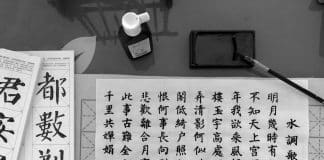 水調歌
明月幾時有
不知天上宮
年我欲乘風
樓玉宇高處
弄清影何似
閣低綺戶照
恨何事長向
悲歡離合月
此事古難全
千里共嬋娟
都數
君